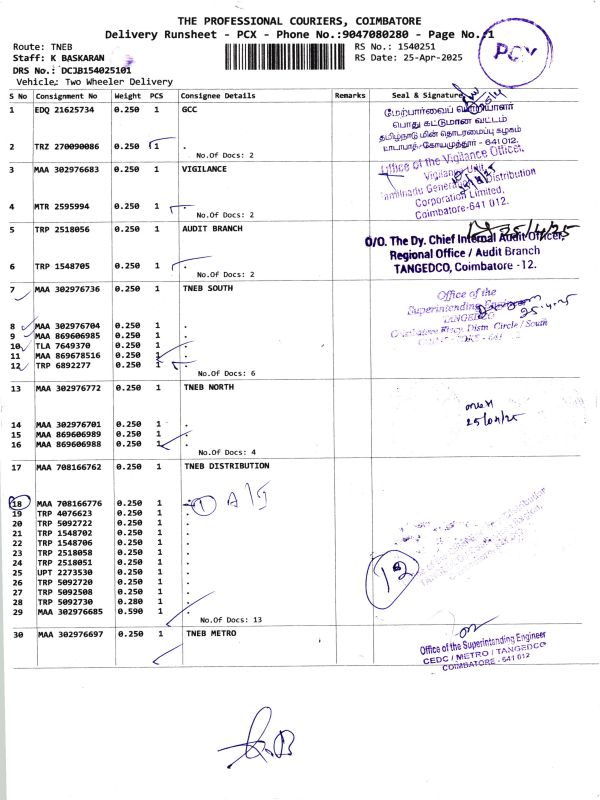 THE PROFESSIONAL COURIERS, COIMBATORE
Delivery Runsheet - PCX - Phone No.:9047080280 - Page No.:1
Route: TNEB
RS No.: 1540251
PCX
Staff: K BASKARAN
RS Date: 25-Apr-2025
DRS No.: DCJB154025101
Vehicle: Two Wheeler Delivery
S No Consignment No Weight PCS Consignee Details Remarks Seal & Signature
1 EDQ 21625734 0.250 1 GCC
மேற்பார்வைப் பொறியாளர்
பொது கட்டுமான வட்டம்
தமிழ்நாடு மின் தொடரமைப்பு கழகம்
டாடாபாத், கோயமுத்தூர் - 641 012.
2 TRZ 270090086 0.250 1 .
No.Of Docs: 2
3 MAA 302976683 0.250 1 VIGILANCE
Office of the Vigilance Officer,
Vigilance Unit
Tamilnadu Generation Distribution
Corporation Limited,
Coimbatore-641 012.
4 MTR 2595994 0.250 1 .
No.Of Docs: 2
5 TRP 2518056 0.250 1 AUDIT BRANCH
25/4/25
O/O. The Dy. Chief Internal Audit Officer,
Regional Office / Audit Branch
TANGEDCO, Coimbatore -12.
6 TRP 1548705 0.250 1 .
No.Of Docs: 2
7 MAA 302976736 0.250 1 TNEB SOUTH
Office of the
Superintending Engineer
25.4.25
TANGEDCO
Coimbatore Elecy. Distn. Circle / South
8 MAA 302976704 0.250 1 .
9 MAA 869606985 0.250 1 .
10 TLA 7649370 0.250 1 .
11 MAA 869678516 0.250 1 .
12 TRP 6892277 0.250 1 .
No.Of Docs: 6
13 MAA 302976772 0.250 1 TNEB NORTH
25/04/25
14 MAA 302976701 0.250 1 .
15 MAA 869606989 0.250 1 .
16 MAA 869606988 0.250 1 .
No.Of Docs: 4
17 MAA 708166762 0.250 1 TNEB DISTRIBUTION
18 MAA 708166776 0.250 1 .
1
19 TRP 4076623 0.250 1 .
20 TRP 5092722 0.250 1 .
21 TRP 1548702 0.250 1 .
22 TRP 1548706 0.250 1 .
23 TRP 2518058 0.250 1 .
24 TRP 2518051 0.250 1 .
25 UPT 2273530 0.250 1 .
26 TRP 5092720 0.250 1 .
27 TRP 5092508 0.250 1 .
28 TRP 5092730 0.280 1 .
29 MAA 302976685 0.590 1 .
12
No.Of Docs: 13
30 MAA 302976697 0.250 1 TNEB METRO
Office of the Superintending Engineer
CEDC / METRO / TANGEDCO
COIMBATORE - 641 012